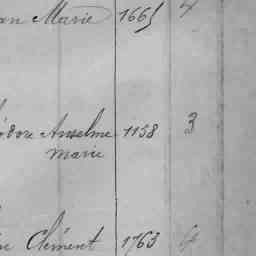 Marie 1665
Anselme 1158 3
Marie
Clément 1763 4